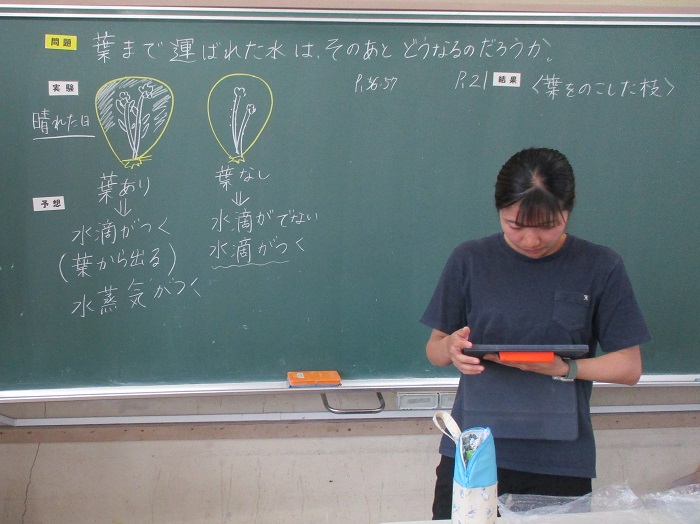 問題 葉まで運ばれた水は、そのあとどうなるのだろうか。
実験
晴れた日
P.56.57
P.21 結果 〈葉をのこした枝〉
予想
葉あり
↓
水滴がつく
(葉から出る)
水蒸気がつく
葉なし
↓
水滴がでない
水滴がつく